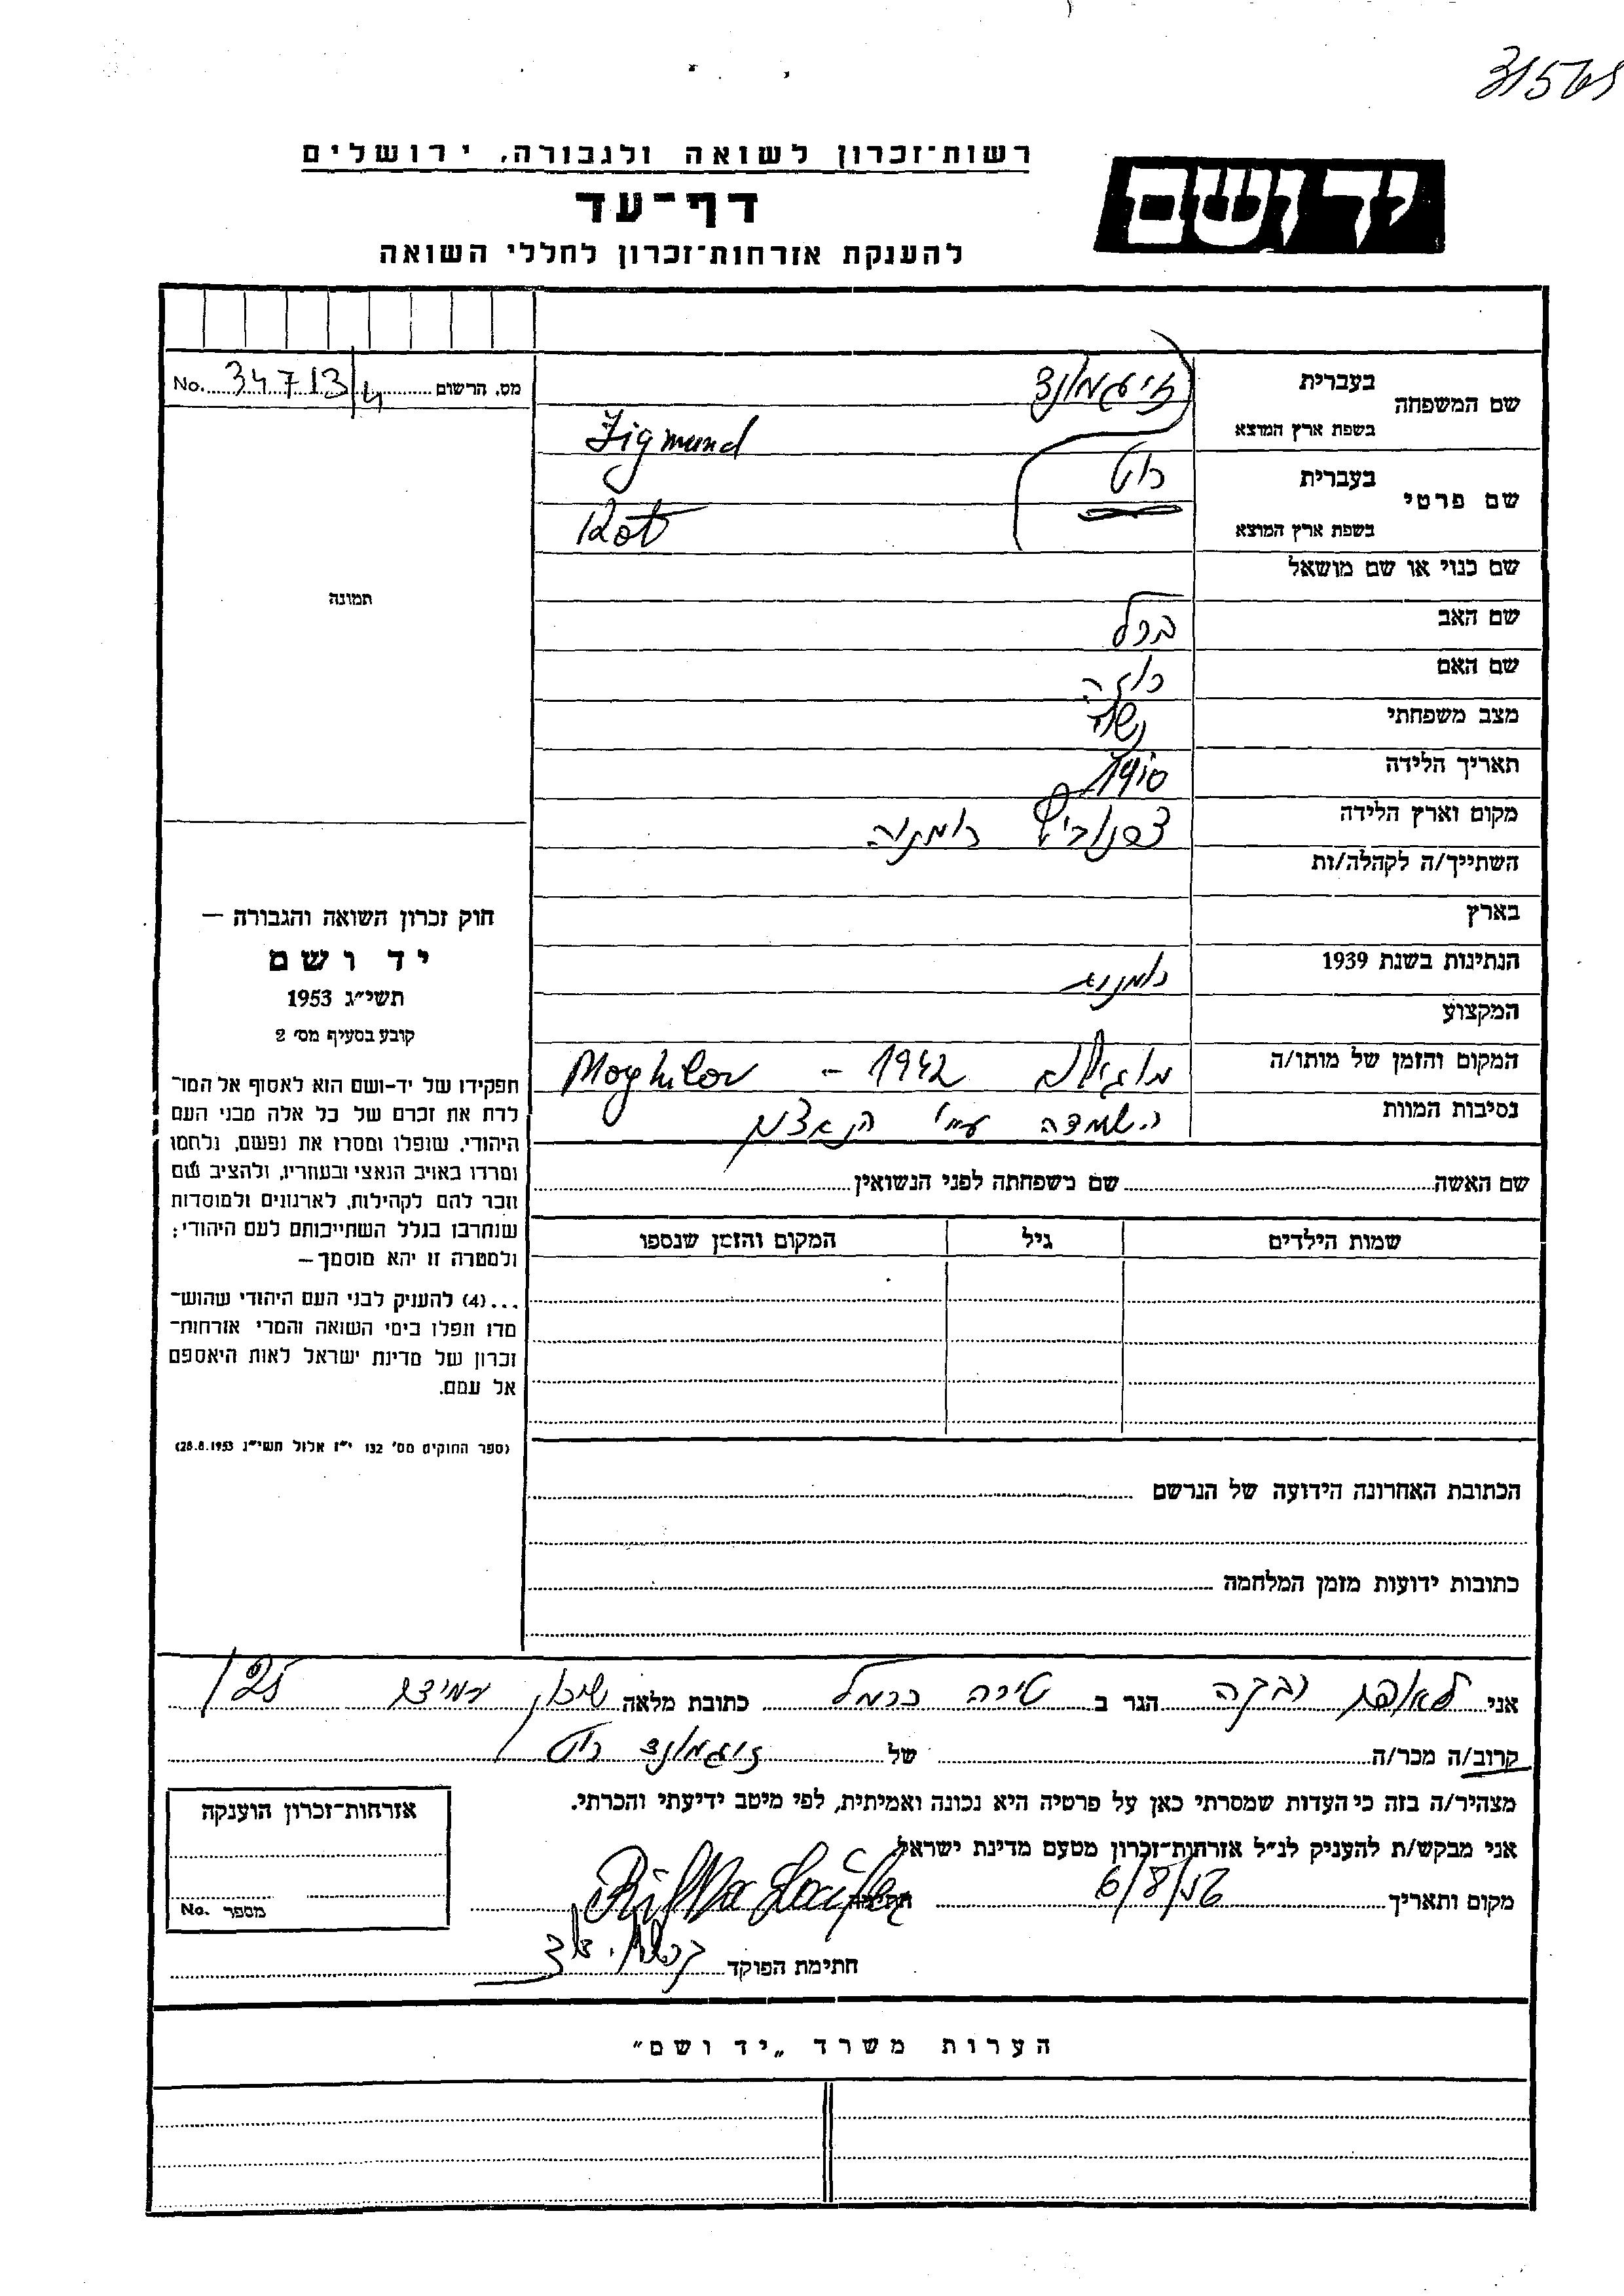 רשות־זכרון לשואה ולגבורה, ירושלים
יד ושם
דף־עד
להענקת אזרחות־זכרון לחללי השואה
מס. הרשום 34713/4 No.
שם המשפחה
בעברית
זיגמונד
בשפת ארץ המוצא
Zigmund
שם פרטי
בעברית
רוט
בשפת ארץ המוצא
Rot
שם כנוי או שם מושאל
תמונה
שם האב ברל
שם האם רוזה
מצב משפחתי נשוי
תאריך הלידה
מקום וארץ הלידה צרנוביץ רומניה
השתייך/ה לקהלה/ות
בארץ
הנתינות בשנת 1939 רומנית
המקצוע
המקום והזמן של מותו/ה 1942 – Moghilov
נסיבות המוות השמדה ע״י הנאצים
חוק זכרון השואה והגבורה —
יד ושם
תשי״ג 1953
קובע בסעיף מס׳ 2
תפקידו של יד־ושם הוא לאסוף אל המו־
לדת את זכרם של כל אלה מבני העם
היהודי, שנפלו ומסרו את נפשם, נלחמו
ומרדו באויב הנאצי ובעוזריו, ולהציב שם
וזכר להם לקהילות, לארגונים ולמוסדות
שנחרבו בגלל השתייכותם לעם היהודי;
ולמטרה זו יהא מוסמך—
...(4) להעניק לבני העם היהודי שהוש־
מדו ונפלו בימי השואה והמרי אזרחות־
זכרון של מדינת ישראל לאות היאספם
אל עמם.
(ספר החוקים מס׳ 132 י״ז אלול תשי״ג 28.8.1953)
שם האשה שם משפחתה לפני הנשואין
שמות הילדים גיל המקום והזמן שנספו
הכתובת האחרונה הידועה של הנרשם
כתובות ידועות מזמן המלחמה
אני לאופר רבקה הגר ב טירה כרמל כתובת מלאה שיכון עמידר 125
קרוב/ה מכר/ה של זיגמונד רוט
מצהיר/ה בזה כי העדות שמסרתי כאן על פרטיה היא נכונה ואמיתית, לפי מיטב ידיעתי והכרתי.
אני מבקש/ת להעניק לנ״ל אזרחות־זכרון מטעם מדינת ישראל
מקום ותאריך 6/8/56 חתימה Rifka Laufer
חתימת הפוקד
אזרחות־זכרון הוענקה
מספר No.
הערות משרד „יד ושם״